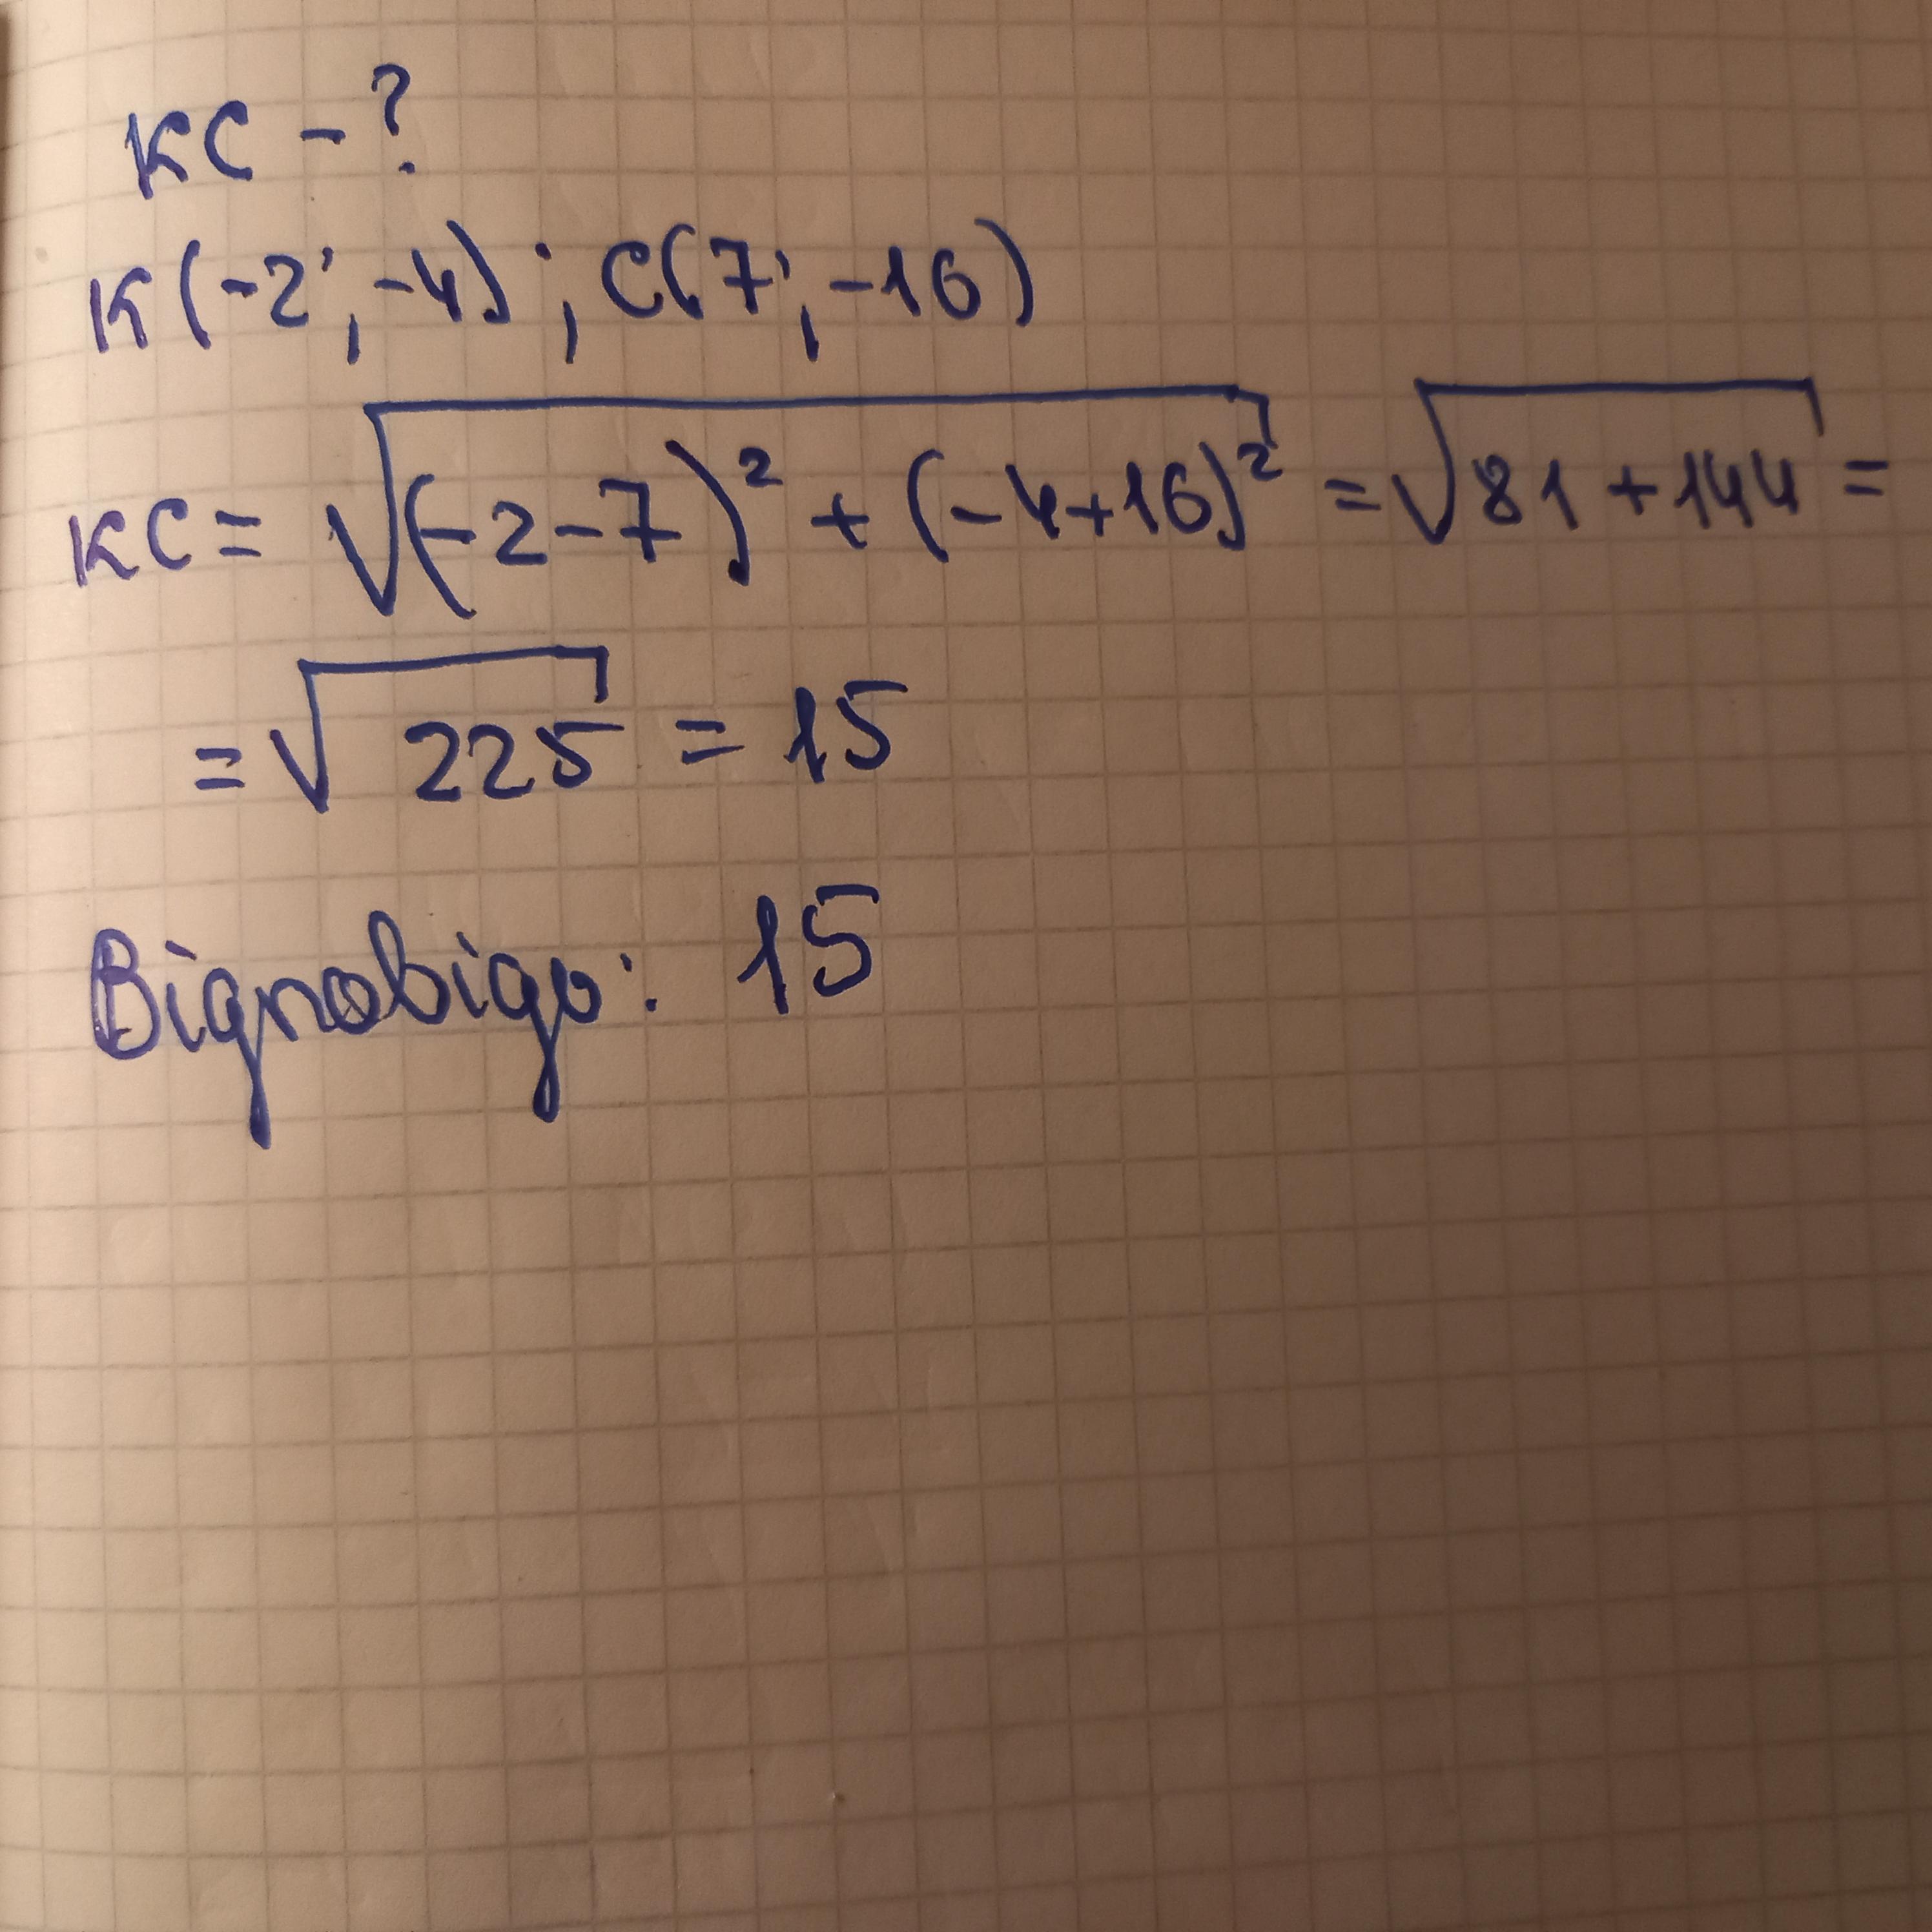 КС - ?
К(-2; -4); С(7; -16)
КС = √((-2-7)² + (-4+16)²) = √(81+144) =
= √225 = 15
Відповідь: 15